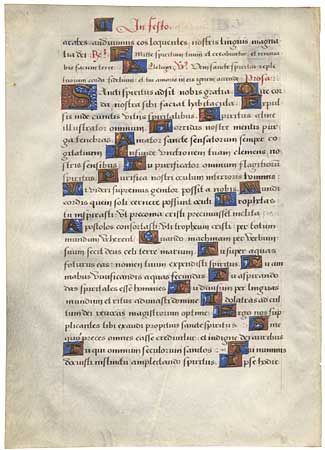 In festo
arabes audivimus eos loquentes nostris linguis magna
lia dei R. Emitte spiritum tuum et creabuntur et renova
bis faciem terre. Alleluya V. Veni sancte spiritus reple
tuorum corda fidelium et tui amoris in eis ignem accende Prosa
Sancti spiritus adsit nobis gratia Que cor
da nostra sibi faciat habitacula Expul
sis inde cunctis vitiis spiritalibus Spiritus alme
illustrator omnium Horridas nostre mentis pur
ga tenebras Amator sancte sensatorum semper co
gitatuum Infunde unctionem tuam clemens no
stris sensibus Tu purificator omnium flagitiorum
Spiritus Purifica nostri oculum interioris hominis
Ut videri supremus genitor possit a nobis Mundi
cordis quem soli cernere possunt oculi Prophetas
tu inspirasti Ut preconia christi precinuissent inclita
Apostolos confortasti Uti tropheum christi per totum
mundum veherent Quando machinam per verbum
suum fecit deus celi terre marium Tu super aquas
foturus eas numen tuum expandisti spiritus Tu ani
mabus vivificandis aquas fecundas Tu aspirando
das spiritales esse homines Tu divisum per linguas
mundum et ritus adunasti domine Idolatras ad cul
tum dei revocas magistrorum optime Ergo nos sup
plicantes tibi exaudi propitius sancte spiritus Sine
quo preces omnes casse creduntur et indigne dei auribus
Tu qui omnium seculorum sanctos Tui numinis
docuisti instinctu amplectando spiritus Ipse hodie